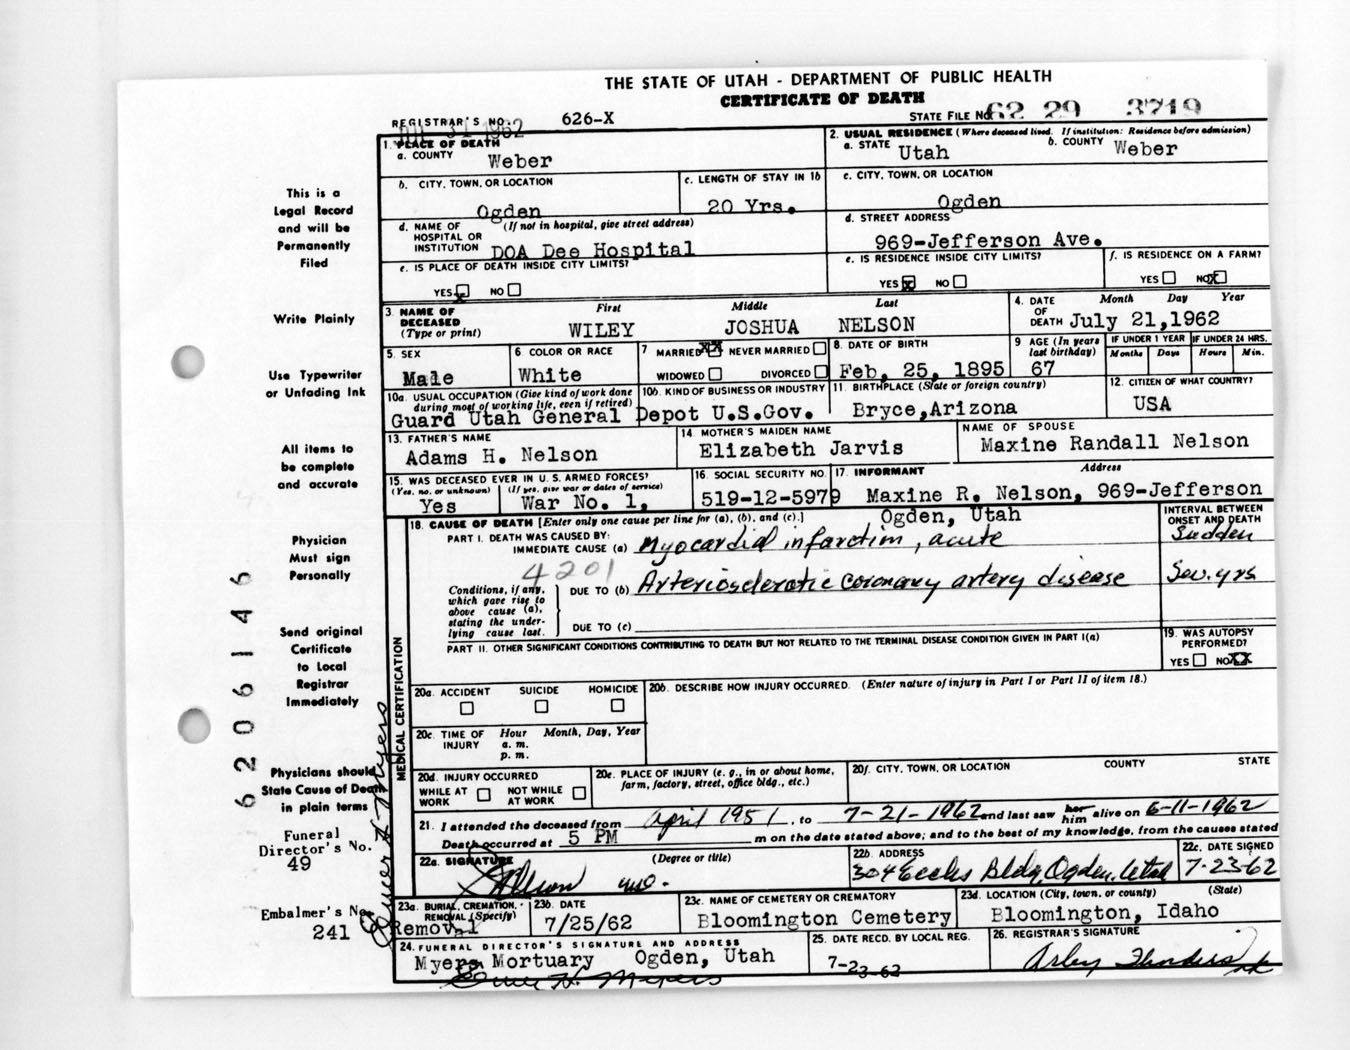 THE STATE OF UTAH - DEPARTMENT OF PUBLIC HEALTH
CERTIFICATE OF DEATH
REGISTRAR'S NO. 626-X
STATE FILE NO. 62 29 3719
31 1962
1. PLACE OF DEATH
a. COUNTY Weber
2. USUAL RESIDENCE (Where deceased lived. If institution: Residence before admission)
a. STATE Utah b. COUNTY Weber
b. CITY, TOWN, OR LOCATION Ogden
c. LENGTH OF STAY IN 1b 20 Yrs.
c. CITY, TOWN, OR LOCATION Ogden
d. NAME OF HOSPITAL OR INSTITUTION (If not in hospital, give street address) DOA Dee Hospital
d. STREET ADDRESS 969-Jefferson Ave.
e. IS PLACE OF DEATH INSIDE CITY LIMITS?
YES x NO
e. IS RESIDENCE INSIDE CITY LIMITS?
YES x NO
f. IS RESIDENCE ON A FARM?
YES NO X
3. NAME OF DECEASED (Type or print)
First Middle Last
WILEY JOSHUA NELSON
4. DATE OF DEATH Month Day Year
July 21,1962
5. SEX Male
6 COLOR OR RACE White
7 MARRIED XX NEVER MARRIED
WIDOWED DIVORCED
8. DATE OF BIRTH Feb. 25, 1895
9 AGE (In years last birthday) 67
IF UNDER 1 YEAR Months Days
IF UNDER 24 HRS. Hours Min.
10a. USUAL OCCUPATION (Give kind of work done during most of working life, even if retired)
10b. KIND OF BUSINESS OR INDUSTRY
Guard Utah General Depot U.S.Gov.
11. BIRTHPLACE (State or foreign country) Bryce,Arizona
12. CITIZEN OF WHAT COUNTRY? USA
13. FATHER'S NAME Adams H. Nelson
14. MOTHER'S MAIDEN NAME Elizabeth Jarvis
NAME OF SPOUSE Maxine Randall Nelson
15. WAS DECEASED EVER IN U.S. ARMED FORCES?
(Yes, no, or unknown) (If yes, give war or dates of service)
Yes War No. 1,
16. SOCIAL SECURITY NO. 519-12-5979
17. INFORMANT Address
Maxine R. Nelson, 969-Jefferson
Ogden, Utah
MEDICAL CERTIFICATION
18. CAUSE OF DEATH [Enter only one cause per line for (a), (b), and (c).]
INTERVAL BETWEEN ONSET AND DEATH
PART I. DEATH WAS CAUSED BY:
IMMEDIATE CAUSE (a) Myocardial infarction, acute Sudden
4201
Conditions, if any, which gave rise to above cause (a), stating the underlying cause last.
DUE TO (b) Arteriosclerotic coronary artery disease Sev. yrs
DUE TO (c)
PART II. OTHER SIGNIFICANT CONDITIONS CONTRIBUTING TO DEATH BUT NOT RELATED TO THE TERMINAL DISEASE CONDITION GIVEN IN PART I(a)
19. WAS AUTOPSY PERFORMED?
YES NO XX
20a. ACCIDENT SUICIDE HOMICIDE
20b. DESCRIBE HOW INJURY OCCURRED. (Enter nature of injury in Part I or Part II of item 18.)
20c. TIME OF INJURY Hour Month, Day, Year
a. m.
p. m.
20d. INJURY OCCURRED
WHILE AT WORK NOT WHILE AT WORK
20e. PLACE OF INJURY (e. g., in or about home, farm, factory, street, office bldg., etc.)
20f. CITY, TOWN, OR LOCATION COUNTY STATE
21. I attended the deceased from April 1951, to 7-21-1962 and last saw her him alive on 6-11-1962
Death occurred at 5 PM m on the date stated above; and to the best of my knowledge, from the causes stated
22a. SIGNATURE (Degree or title)
M.D.
22b. ADDRESS 304 Eccles Bldg, Ogden, Utah
22c. DATE SIGNED 7-23-62
23a. BURIAL, CREMATION, REMOVAL (Specify) Removal
23b. DATE 7/25/62
23c. NAME OF CEMETERY OR CREMATORY Bloomington Cemetery
23d. LOCATION (City, town, or county) (State)
Bloomington, Idaho
24. FUNERAL DIRECTOR'S SIGNATURE AND ADDRESS
Myers Mortuary Ogden, Utah
25. DATE RECD. BY LOCAL REG. 7-23-62
26. REGISTRAR'S SIGNATURE
This is a
Legal Record
and will be
Permanently
Filed
Write Plainly
Use Typewriter
or Unfading Ink
All items to
be complete
and accurate
Physician
Must sign
Personally
Send original
Certificate
to Local
Registrar
Immediately
Physicians should
State Cause of Death
in plain terms
Funeral
Director's No.
49
Embalmer's No.
241
62 06146